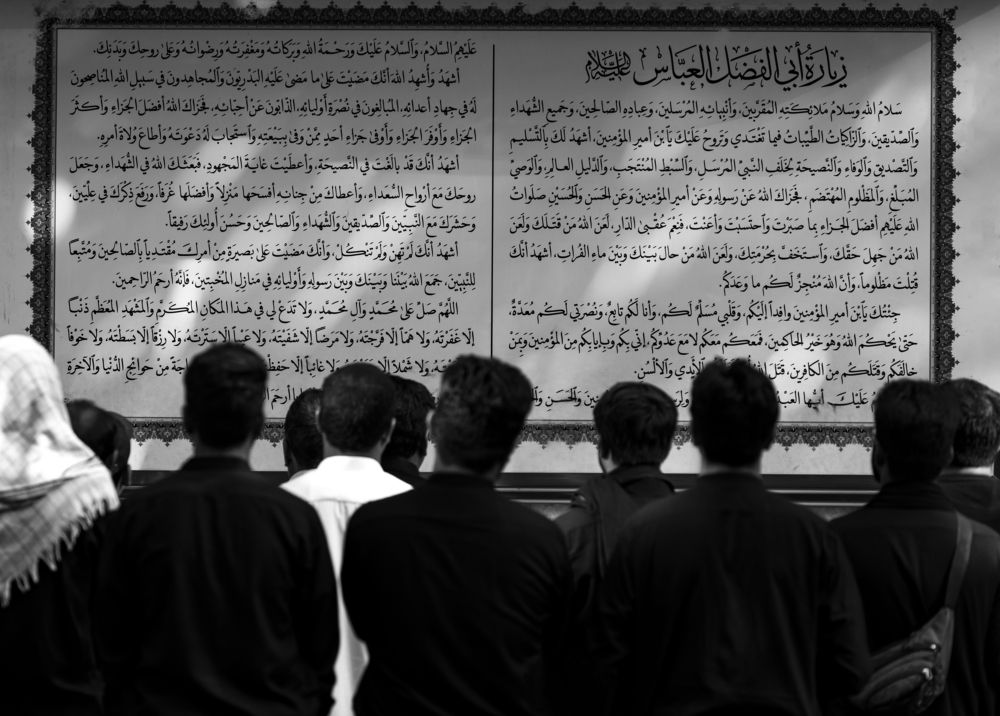 زيارة أبي الفضل العباس عليه السلام
سَلامُ اللهِ وَسَلامُ مَلائِكَتِهِ المُقَرَّبينَ، وَأَنْبِيائِهِ المُرْسَلينَ، وَعِبادِهِ الصّالِحينَ، وَجَميعِ الشُّهَداءِ
وَالصِّدّيقينَ، وَالزّاكِياتُ الطَّيِّباتُ فيما تَغْتَدي وَتَروحُ عَلَيْكَ يَابْنَ أميرِ المُؤْمِنينَ، أشهَدُ لَكَ بِالتَّسْليمِ
وَالتَّصْديقِ وَالوَفاءِ وَالنَّصيحَةِ لِخَلَفِ النَّبِيِّ المُرْسَلِ، وَالسِّبْطِ المُنْتَجَبِ، وَالدَّليلِ العالِمِ، وَالوَصِيِّ
المُبَلِّغِ، وَالمَظْلومِ المُهْتَضَمِ، فَجَزاكَ اللهُ عَنْ رَسولِهِ وَعَنْ أميرِ المُؤْمِنينَ وَعَنِ الحَسَنِ وَالحُسَيْنِ صَلَواتُ
اللهِ عَلَيْهِم أفضَلَ الجَزاءِ بِما صَبَرْتَ وَاحتَسَبْتَ وَأعَنْتَ، فَنِعْمَ عُقْبَى الدّارِ، لَعَنَ اللهُ مَنْ قَتَلَكَ وَلَعَنَ
اللهُ مَنْ جَهِلَ حَقَّكَ، وَاستَخَفَّ بِحُرْمَتِكَ، وَلَعَنَ اللهُ مَنْ حالَ بَيْنَكَ وَبَيْنَ ماءِ الفُراتِ، أشهَدُ أنَّكَ
قُتِلْتَ مَظْلوماً، وَأنَّ اللهَ مُنْجِزٌ لَكُم ما وَعَدَكُم.
جِئْتُكَ يَابْنَ أميرِ المُؤْمِنينَ وافِداً إلَيْكُم، وَقَلْبي مُسَلِّمٌ لَكُم، وَأنا لَكُم تابِعٌ، وَنُصْرَتي لَكُم مُعَدَّةٌ،
حَتّى يَحْكُمَ اللهُ وَهُوَ خَيْرُ الحاكِمينَ، فَمَعَكُم مَعَكُم لا مَعَ عَدُوِّكُم، إنّي بِكُم وَبِإيابِكُم مِنَ المُؤْمِنينَ وَبِمَنْ
خالَفَكُم وَقَتَلَكُم مِنَ الكافِرينَ، قَتَلَ اللهُ بِالأيْدي وَالألْسُنِ.
عَلَيْكَ أيُّها العَبْدُ وَالحَسَنِ
عَلَيْهِمُ السَّلامُ، وَالسَّلامُ عَلَيْكَ وَرَحْمَةُ اللهِ وَبَرَكاتُهُ وَمَغْفِرَتُهُ وَرِضْوانُهُ وَعَلى روحِكَ وَبَدَنِكَ.
أشهَدُ وَأُشهِدُ اللهَ أنَّكَ مَضَيْتَ عَلى ما مَضى عَلَيْهِ البَدْرِيّونَ وَالمُجاهِدونَ في سَبيلِ اللهِ المُناصِحونَ
لَهُ في جِهادِ أعدائِهِ، المُبالِغونَ في نُصْرَةِ أوْلِيائِهِ، الذّابّونَ عَنْ أحِبّائِهِ، فَجَزاكَ اللهُ أفضَلَ الجَزاءِ وَأكثَرَ
الجَزاءِ وَأوْفَرَ الجَزاءِ وَأوْفى جَزاءِ أحَدٍ مِمَّنْ وَفى بِبَيْعَتِهِ وَاسْتَجابَ لَهُ دَعْوَتَهُ وَأطاعَ وُلاةَ أمرِهِ.
أشهَدُ أنَّكَ قَدْ بالَغْتَ في النَّصيحَةِ، وَأعطَيْتَ غايَةَ المَجْهودِ، فَبَعَثَكَ اللهُ في الشُّهَداءِ، وَجَعَلَ
روحَكَ مَعَ أرْواحِ السُّعَداءِ، وَأعطاكَ مِنْ جِنانِهِ أفسَحَها مَنْزِلاً وَأفضَلَها غُرَفاً، وَرَفَعَ ذِكْرَكَ في عِلِّيّينَ،
وَحَشَرَكَ مَعَ النَّبِيّينَ وَالصِّدّيقينَ وَالشُّهَداءِ وَالصّالِحينَ وَحَسُنَ أُولئِكَ رَفيقاً.
أشهَدُ أنَّكَ لَمْ تَهِنْ وَلَمْ تَنْكُلْ، وَأنَّكَ مَضَيْتَ عَلى بَصيرَةٍ مِنْ أمرِكَ، مُقْتَدِياً بِالصّالِحينَ وَمُتَّبِعاً
لِلنَّبِيّينَ، جَمَعَ اللهُ بَيْنَنا وَبَيْنَكَ وَبَيْنَ رَسولِهِ وَأوْلِيائِهِ في مَنازِلِ المُخْبِتينَ، فَإنَّهُ أرحَمُ الرّاحِمينَ.
اللَّهُمَّ صَلِّ عَلى مُحَمَّدٍ وَآلِ مُحَمَّدٍ، وَلا تَدَعْ لي في هذا المَكانِ المُكَرَّمِ وَالمَشْهَدِ المُعَظَّمِ ذَنْباً
إلّا غَفَرْتَهُ، وَلا هَمّاً إلّا فَرَّجْتَهُ، وَلا مَرَضاً إلّا شَفَيْتَهُ، وَلا عَيْباً إلّا سَتَرْتَهُ، وَلا رِزْقاً إلّا بَسَطْتَهُ، وَلا خَوْفاً
وَلا شَمْلاً إلّا وَلا غائِباً إلّا حَفِظْتَهُ مِنْ حَوائِجِ الدُّنْيا وَالآخِرَةِ
يا أرحَمَ